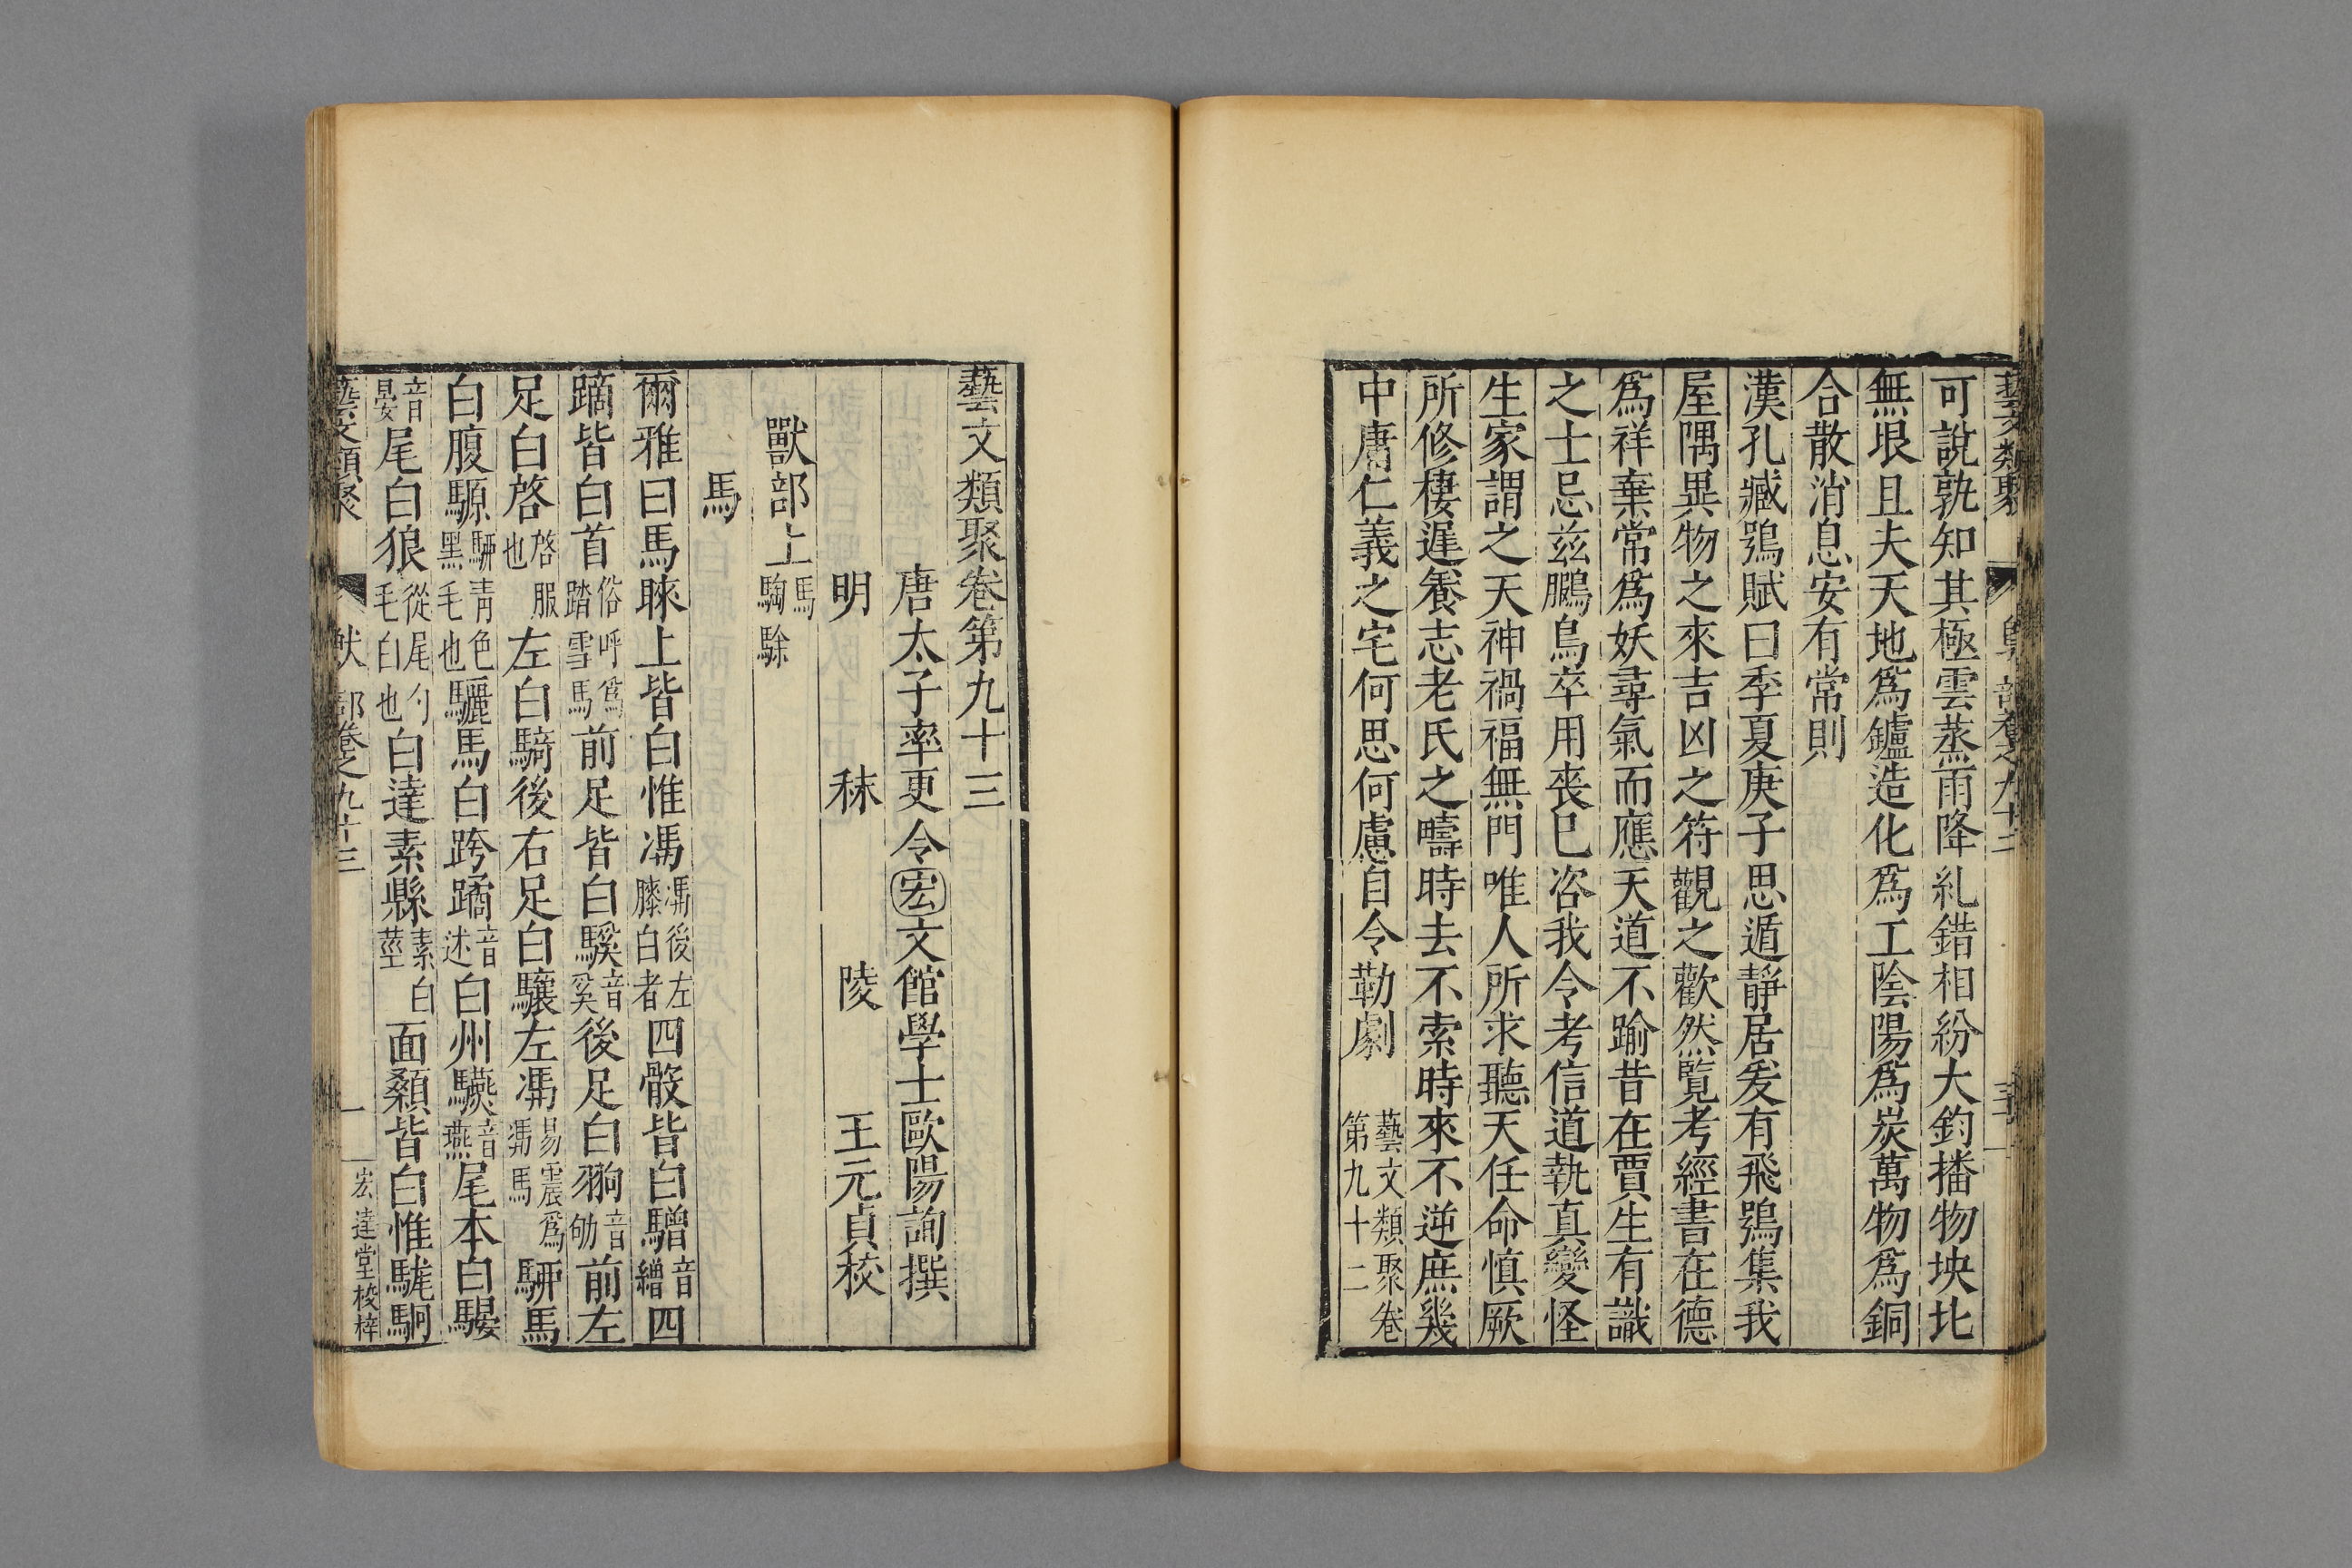 可說孰知其極雲蒸雨降糺錯相紛大鈞播物坱圠
無垠且夫天地爲鑪造化爲工陰陽爲炭萬物爲銅
合散消息安有常則
漢孔臧鴞賦曰季夏庚子思遁靜居爰有飛鴞集我
屋隅異物之來吉凶之符觀之歡然覽考經書在德
爲祥棄常爲妖尋氣而應天道不踰昔在賈生有識
之士忌兹鵬鳥卒用喪已咨我令考信道執真變怪
生家謂之天神禍福無門唯人所求聽天任命慎厥
所修棲遲養志老氏之疇時去不索時來不逆庶幾
中庸仁義之宅何思何慮自令勤劇
藝文類聚卷
第九十二
藝文類聚卷第九十三
唐太子率更令宏文館學士歐陽詢撰
明 秣 陵 王元貞校
獸部上 馬 騊駼
馬
爾雅曰馬睞上皆白惟馵馵後左膝白者四骹皆白驓音繒四
蹢皆白首俗呼爲踏雪馬前足皆白騱音奚後足白翑音劬前左
足白啓啓服也左白騎後右足白驤左馵易震爲馵馬駵馬
白腹騵駵青色黑毛毛也驪馬白跨驈音述白州驠音燕尾本白騴
音晏尾白狼從尾勺毛白也白達素縣素白莖面顙皆白惟駹駉
藝文類聚 獸部卷之九十三 一 宏達堂校梓